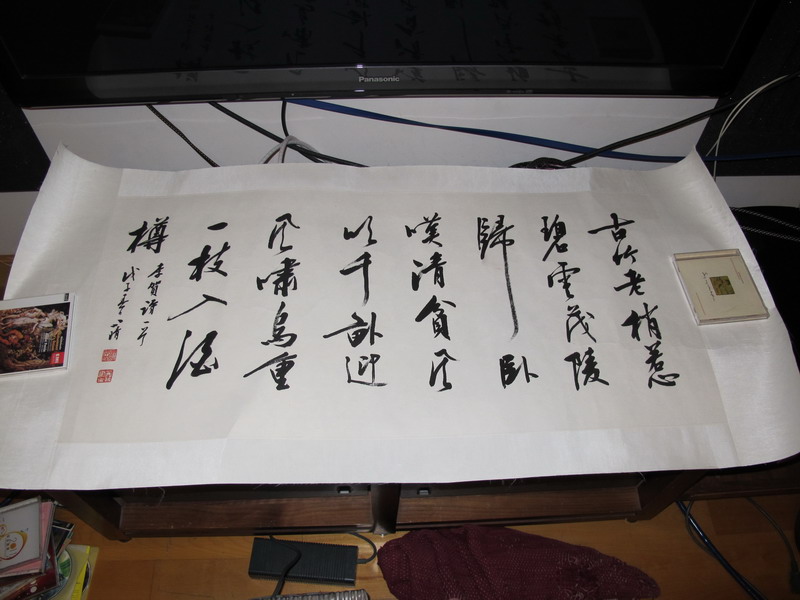 Panasonic
古竹老梢惹
碧雲茂陵
歸臥
嘆清貧風
吹千畝迎
風嘯鳥重
一枝入酒
樽
李賀詩一首
戊子春